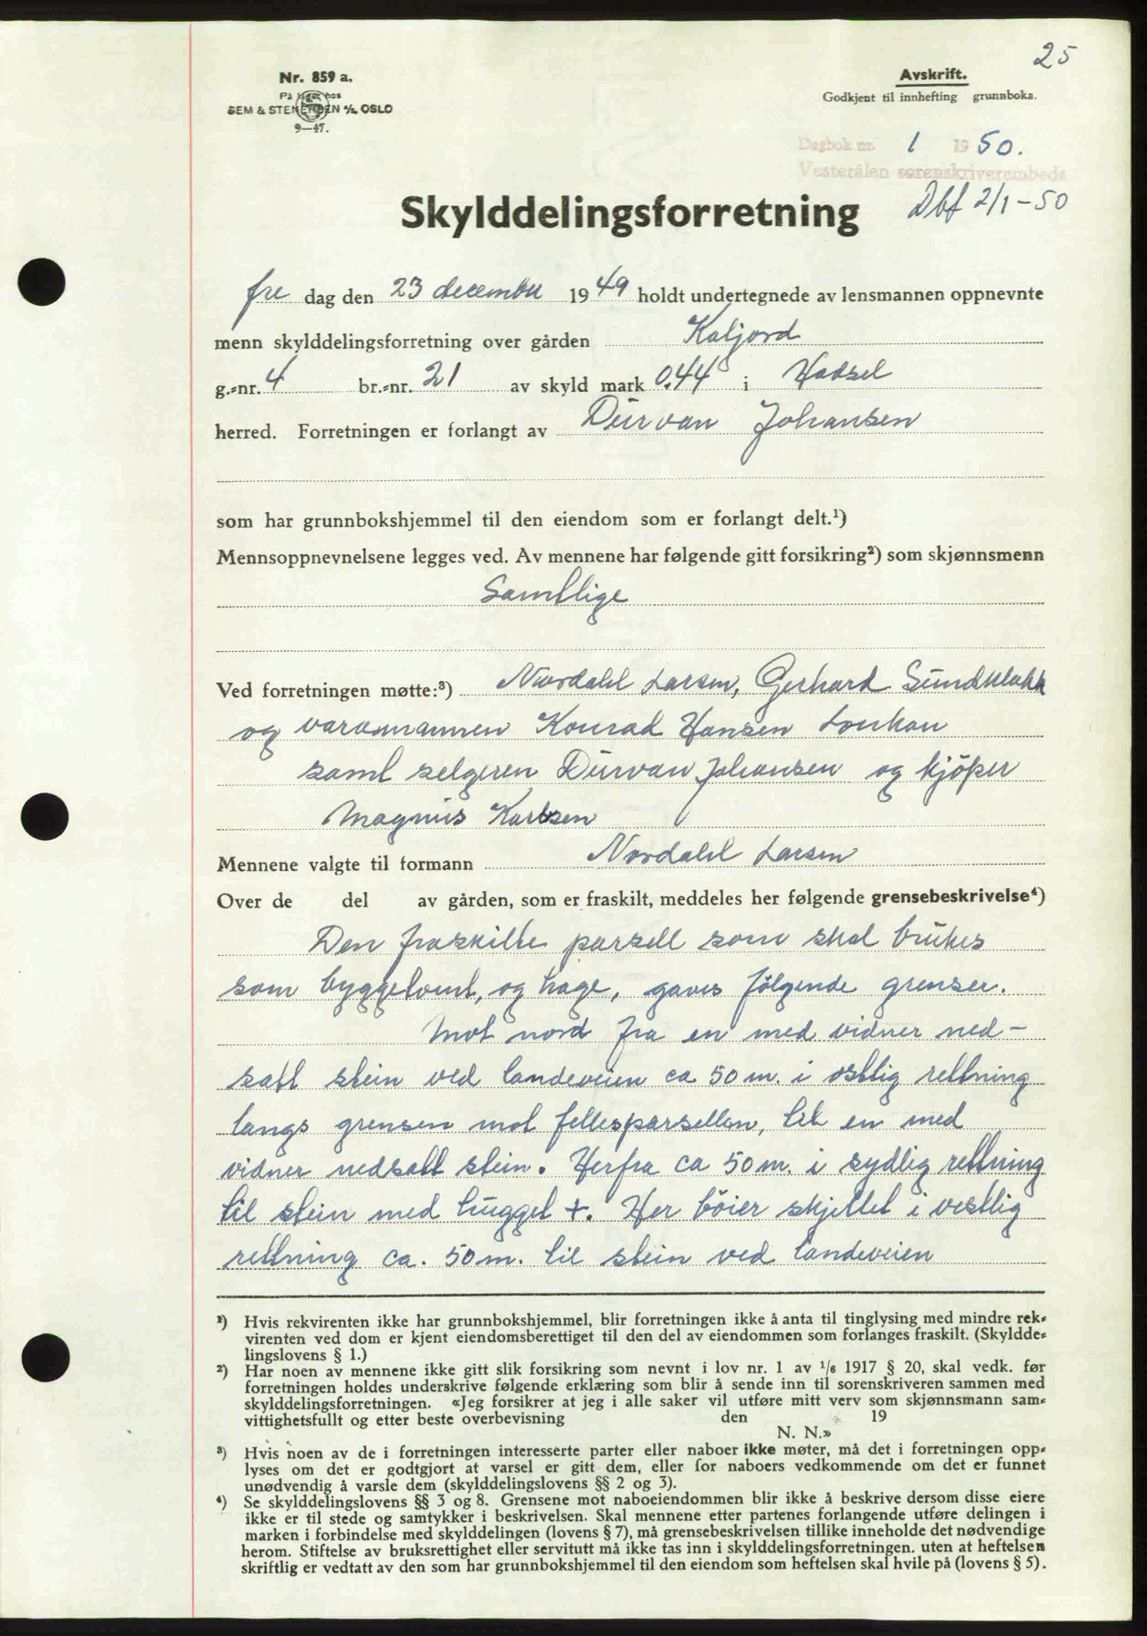 25
Nr. 859 a.
På lager hos
SEM & STENERSEN A/S OSLO
9—47.
Avskrift.
Godkjent til innhefting grunnboka.
Dagbok nr. 1 1950.
Vesterålen sorenskriverembede
Dbf 2/1-50
Skylddelingsforretning
fre dag den 23 december 1949 holdt undertegnede av lensmannen oppnevnte
menn skylddelingsforretning over gården Kaljord
g.-nr. 4 br.-nr. 21 av skyld mark 0.44 i Hadsel
herred. Forretningen er forlangt av Durvan Johansen
som har grunnbokshjemmel til den eiendom som er forlangt delt.¹)
Mennsoppnevnelsene legges ved. Av mennene har følgende gitt forsikring²) som skjønnsmenn
Samtlige
Ved forretningen møtte:³) Nordahl Larsen, Gerhard Sundklakk
og varamannen Konrad Hansen Lonkan
samt selgeren Durvan Johansen og kjöper
Magnus Karlsen
Mennene valgte til formann Nordahl Larsen
Over de del av gården, som er fraskilt, meddeles her følgende grensebeskrivelse⁴)
Den fraskilte parsell som skal brukes
som byggetomt, og hage, gaves følgende grenser.
Mot nord fra en med vidner ned-
satt stein ved landeveien ca 50 m. i östlig rettning
langs grensen mot fellesparsellen, til en med
vidner nedsatt stein. Herfra ca 50 m. i sydlig rettning
til stein med hugget +. Her böier skjellet i vestlig
rettning ca. 50 m. til stein ved landeveien
¹) Hvis rekvirenten ikke har grunnbokshjemmel, blir forretningen ikke å anta til tinglysing med mindre rek-
virenten ved dom er kjent eiendomsberettiget til den del av eiendommen som forlanges fraskilt. (Skyldde-
lingslovens § 1.)
²) Har noen av mennene ikke gitt slik forsikring som nevnt i lov nr. 1 av 1/6 1917 § 20, skal vedk. før
forretningen holdes underskrive følgende erklæring som blir å sende inn til sorenskriveren sammen med
skylddelingsforretningen. «Jeg forsikrer at jeg i alle saker vil utføre mitt verv som skjønnsmann sam-
vittighetsfullt og etter beste overbevisning den 19
N. N.»
³) Hvis noen av de i forretningen interesserte parter eller naboer ikke møter, må det i forretningen opp-
lyses om det er godtgjort at varsel er gitt dem, eller for naboers vedkommende om det er funnet
unødvendig å varsle dem (skylddelingslovens §§ 2 og 3).
⁴) Se skylddelingslovens §§ 3 og 8. Grensene mot naboeiendommen blir ikke å beskrive dersom disse eiere
ikke er til stede og samtykker i beskrivelsen. Skal mennene etter partenes forlangende utføre delingen i
marken i forbindelse med skylddelingen (lovens § 7), må grensebeskrivelsen tillike inneholde det nødvendige
herom. Stiftelse av bruksrettighet eller servitutt må ikke tas inn i skylddelingsforretningen. uten at heftelsen
skriftlig er vedtatt av den som har grunnbokshjemmel til den eiendom som heftelsen skal hvile på (lovens § 5).